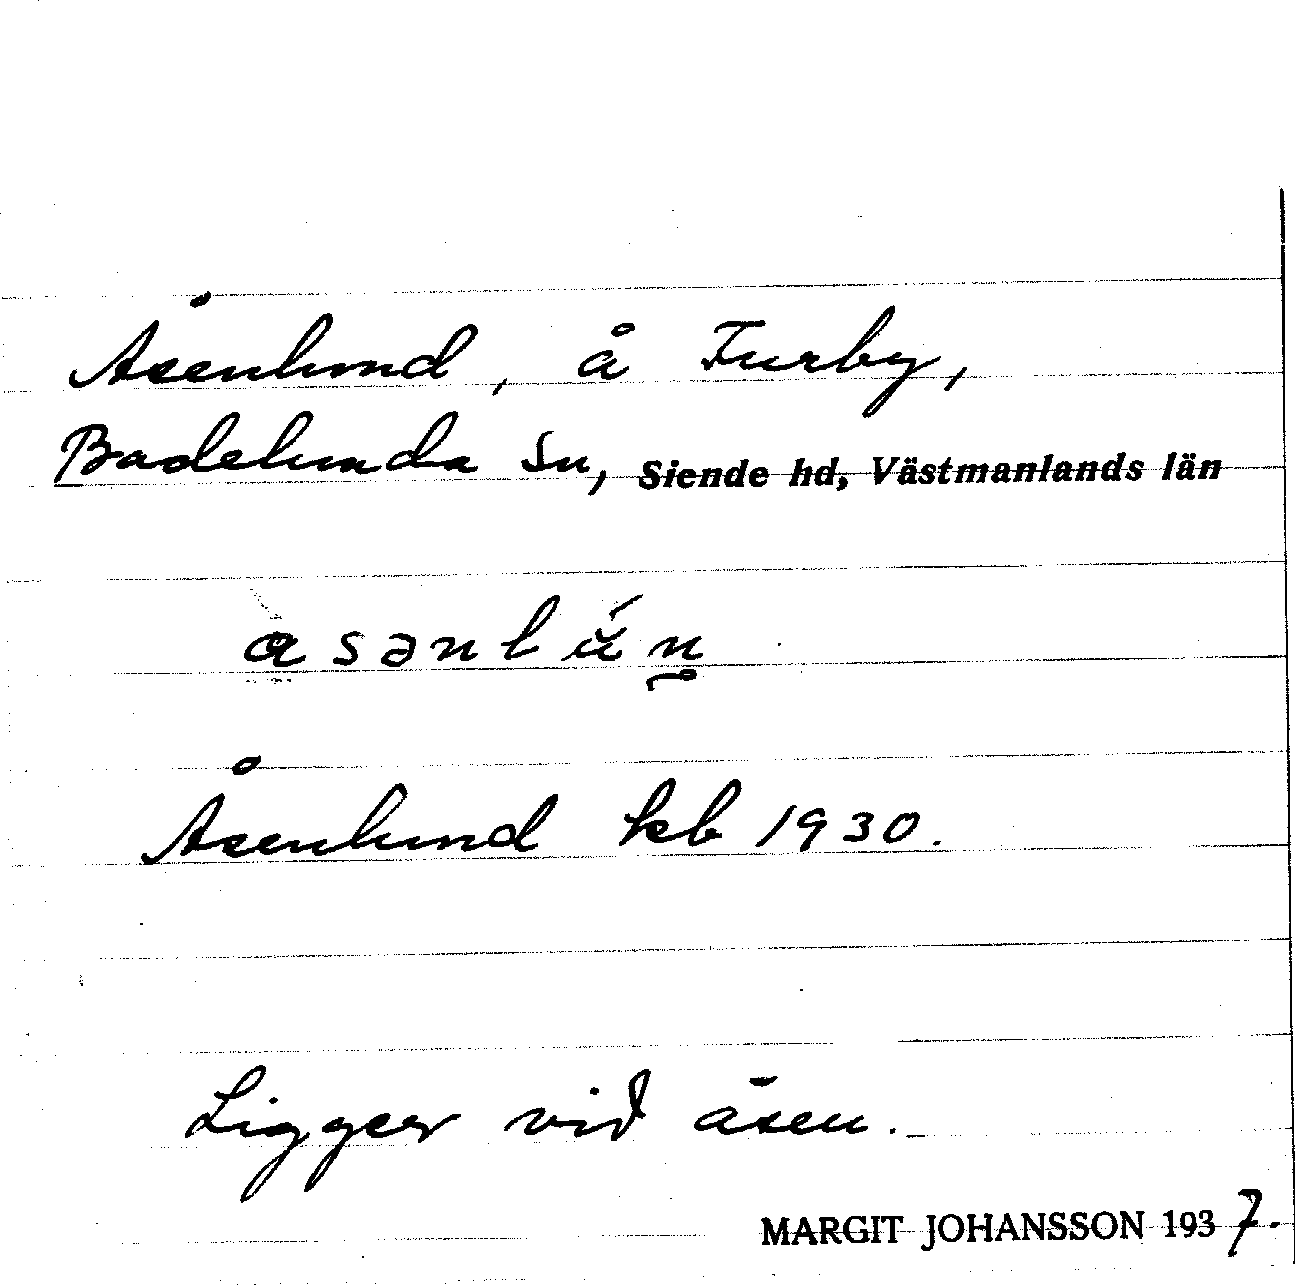 Åsenlund, å Furby,
Badelunda sn, Siende hd, Västmanlands län
Åsenlund kb 1930.
Ligger vid åsen.
MARGIT JOHANSSON 1937.